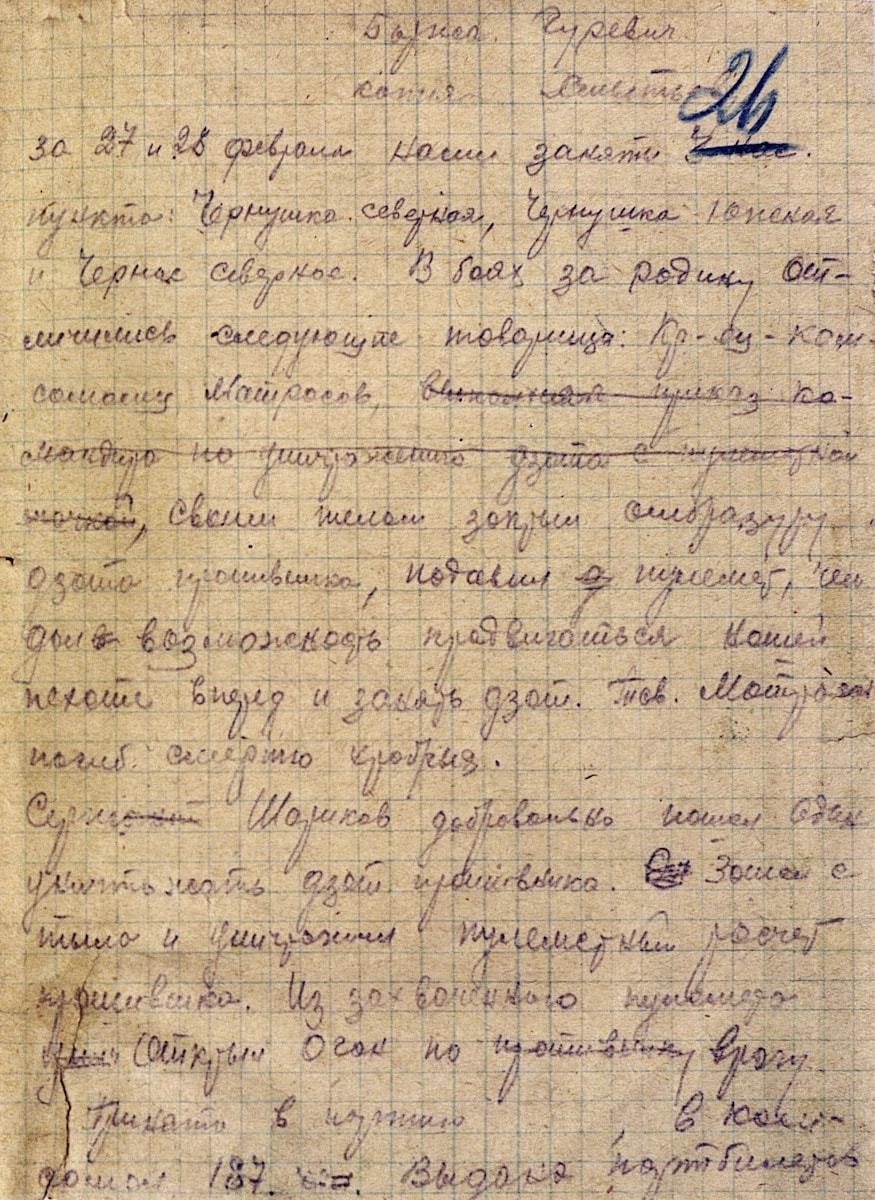 Гуревич
26
за 27 и 28 февраля наши заняты 3 нас.
пункта: Чернушка северная, Чернушка южная
и Черная северное. В боях за родину от-
личились следующие товарищи: Кр-ец - ком-
сомолец Матросов, выполняя приказ ко-
мандира по уничтожению дзота с пулеметной
точкой, своим телом закрыл амбразуру
дзота противника, подавил пулемет, чем
дал возможность продвигаться нашей
пехоте вперед и занять дзот. Тов. Матросов
погиб смертю храбрых.
Шариков добровально пошел один
уничтожать дзот противника. Зашел с
тыла и уничтожил пулеметный расчет
противника. Из захваченного пулемета
Открыл огон по противнику врагу
Принято в партию , в комсо-
молл 187. Выдано партбилетов